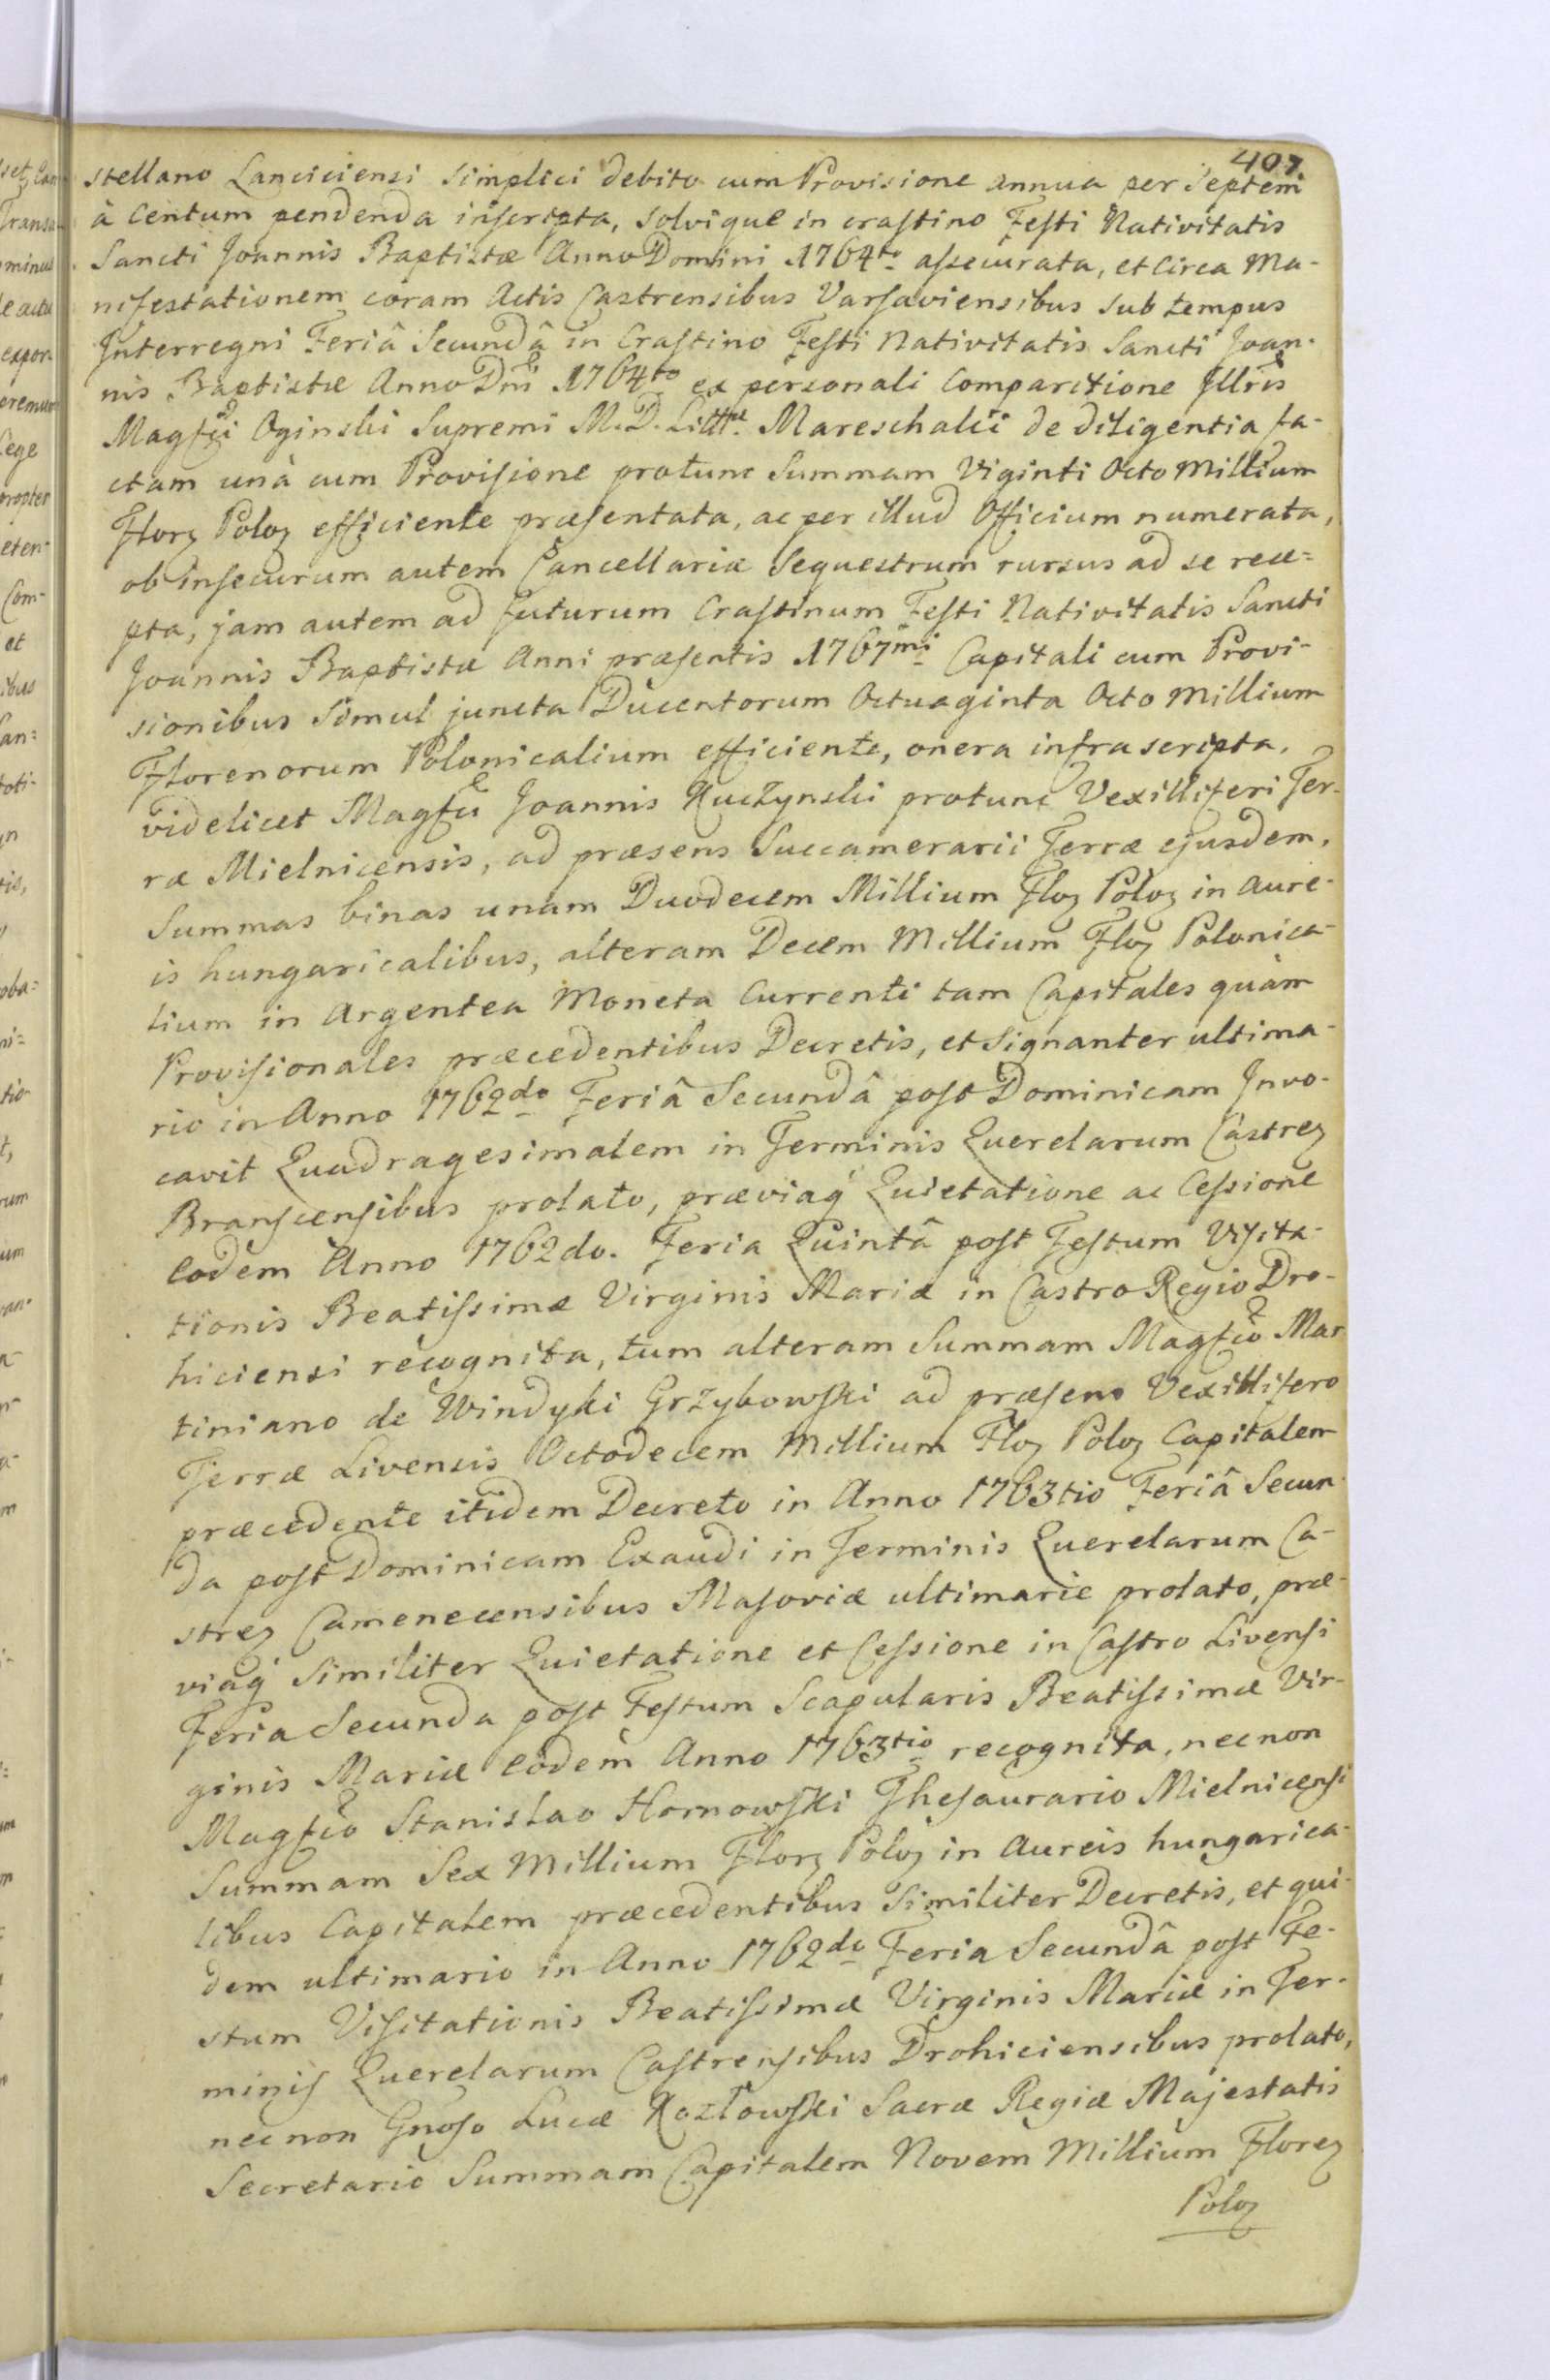 407.
stellano Lanciciensi simplici debito cum Provisione annua per Septem
à Centum pendenda inscripta, solvique in crastino Festi Nativitatis
Sancti Joannis Baptistæ Anno Domini 1764to assecurata, et circa Ma-
nifestationem coram Actis Castrensibus Varsaviensibus sub tempus
Interregni Feriâ Secundâ in Crastino Festi Nativitatis Sancti Joan-
nis Baptistæ Anno Dni 1764to ex personali Comparitione Illris
Magfci Oginski Supremi M. D. Littæ Mareschalci de diligentia fa-
ctam unà cum Provisione protunc Summam Viginti Octo Millium
Florz Poloz efficiente præsentata, ac per illud Officium numerata,
ob insecurum autem Cancellariæ Sequestrum rursus ad se rece-
pta, jam autem ad futurum Crastinum Festi Nativitatis Sancti
Joannis Baptistæ Anni præsentis 1767mi Capitali cum Provi-
sionibus simul juncta Ducentorum Octuaginta Octo Millium
Florenorum Polonicalium efficiente, onera infrascripta,
videlicet Magfci Joannis Kuczynski protunc Vexilliferi Ter-
ræ Mielnicensis, ad præsens Succamerarii Terræ ejusdem,
Summas binas unam Duodecem Millium Floz Poloz in aure-
is hungaricalibus, alteram Decem Millium Floz Polonica-
lium in Argentea Moneta Currenti tam Capitales quàm
Provisionales præcedentibus Decretis, et signanter ultima-
rio in Anno 1762do Feriâ Secundâ post Dominicam Invo-
cavit Quadragesimalem in Terminis Querelarum Castrez
Branscensibus prolato, præviaq Quietatione ac Cessione
Eodem Anno 1762do. Feria Quintâ post Festum Visita-
tionis Beatissimæ Virginis Mariæ in Castro Regio Dro-
hiciensi recognita, tum alteram Summam Magfco Mar
tiniano de Windyki Grzybowski ad præsens Vexillifero
Terræ Livensis Octodecem Millium Floz Poloz Capitalem
præcedente itidem Decreto in Anno 1763tio Feriâ Secun
da post Dominicam Exaudi in Terminis Querelarum Ca-
strez Camenecensibus Masoviæ ultimarie prolato, præ-
viaq similiter Quietatione et Cessione in Castro Livensi
Feria Secunda post Festum Scapularis Beatissimæ Vir-
ginis Mariæ Eodem Anno 1763tio recognita, necnon
Magfco Stanislao Hornowski Thesaurario Mielnicensi
Summam Sex Millium Florz Poloz in Aureis hungarica-
libus Capitalem præcedentibus similiter Decretis, et qui-
dem ultimario in Anno 1762do Feria Secundâ post Fe-
stum Visitationis Beatissimæ Virginis Mariæ in Ter-
minis Querelarum Castrensibus Drohiciensibus prolato,
necnon Gnoso Lucæ Kozłowski Sacræ Regiæ Majestatis
Secretario Summam Capitalem Novem Millium Florez
Poloz